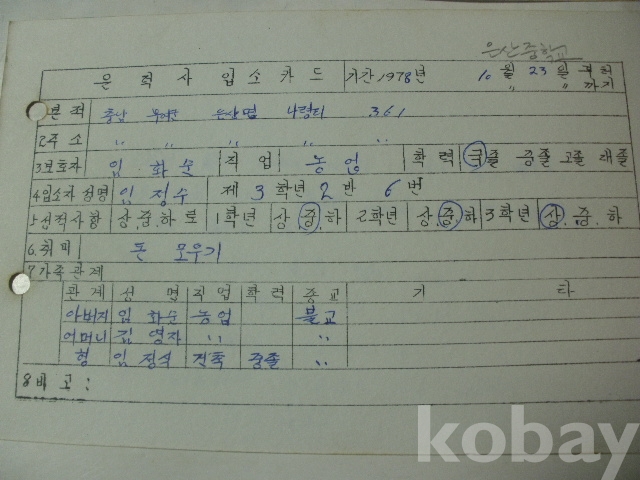 은산중학교
은 적 사 입 소 카 드 기간 1978년 10월 23일 부터
" " 까지
1본 적 충남 부여군 은산면 나령리 361
2주 소 " " " "
3보호자 임 화순 직 업 농 업 학 력 국졸 중졸 고졸 대졸
4입소자 성명 임 정수 제 3 학년 2 반 6 번
5선적사항 상.중.하로 1학년 상.중.하 2학년 상.중.하 3학년 상.중.하
6.취미 돈 모우기
7가족관계
관계 성 명 직업 학력 종교 기 타
아버지 임 화순 농업 불교
어머니 김 영자 " "
형 임 정식 중졸 "
8비 고 :
kobay